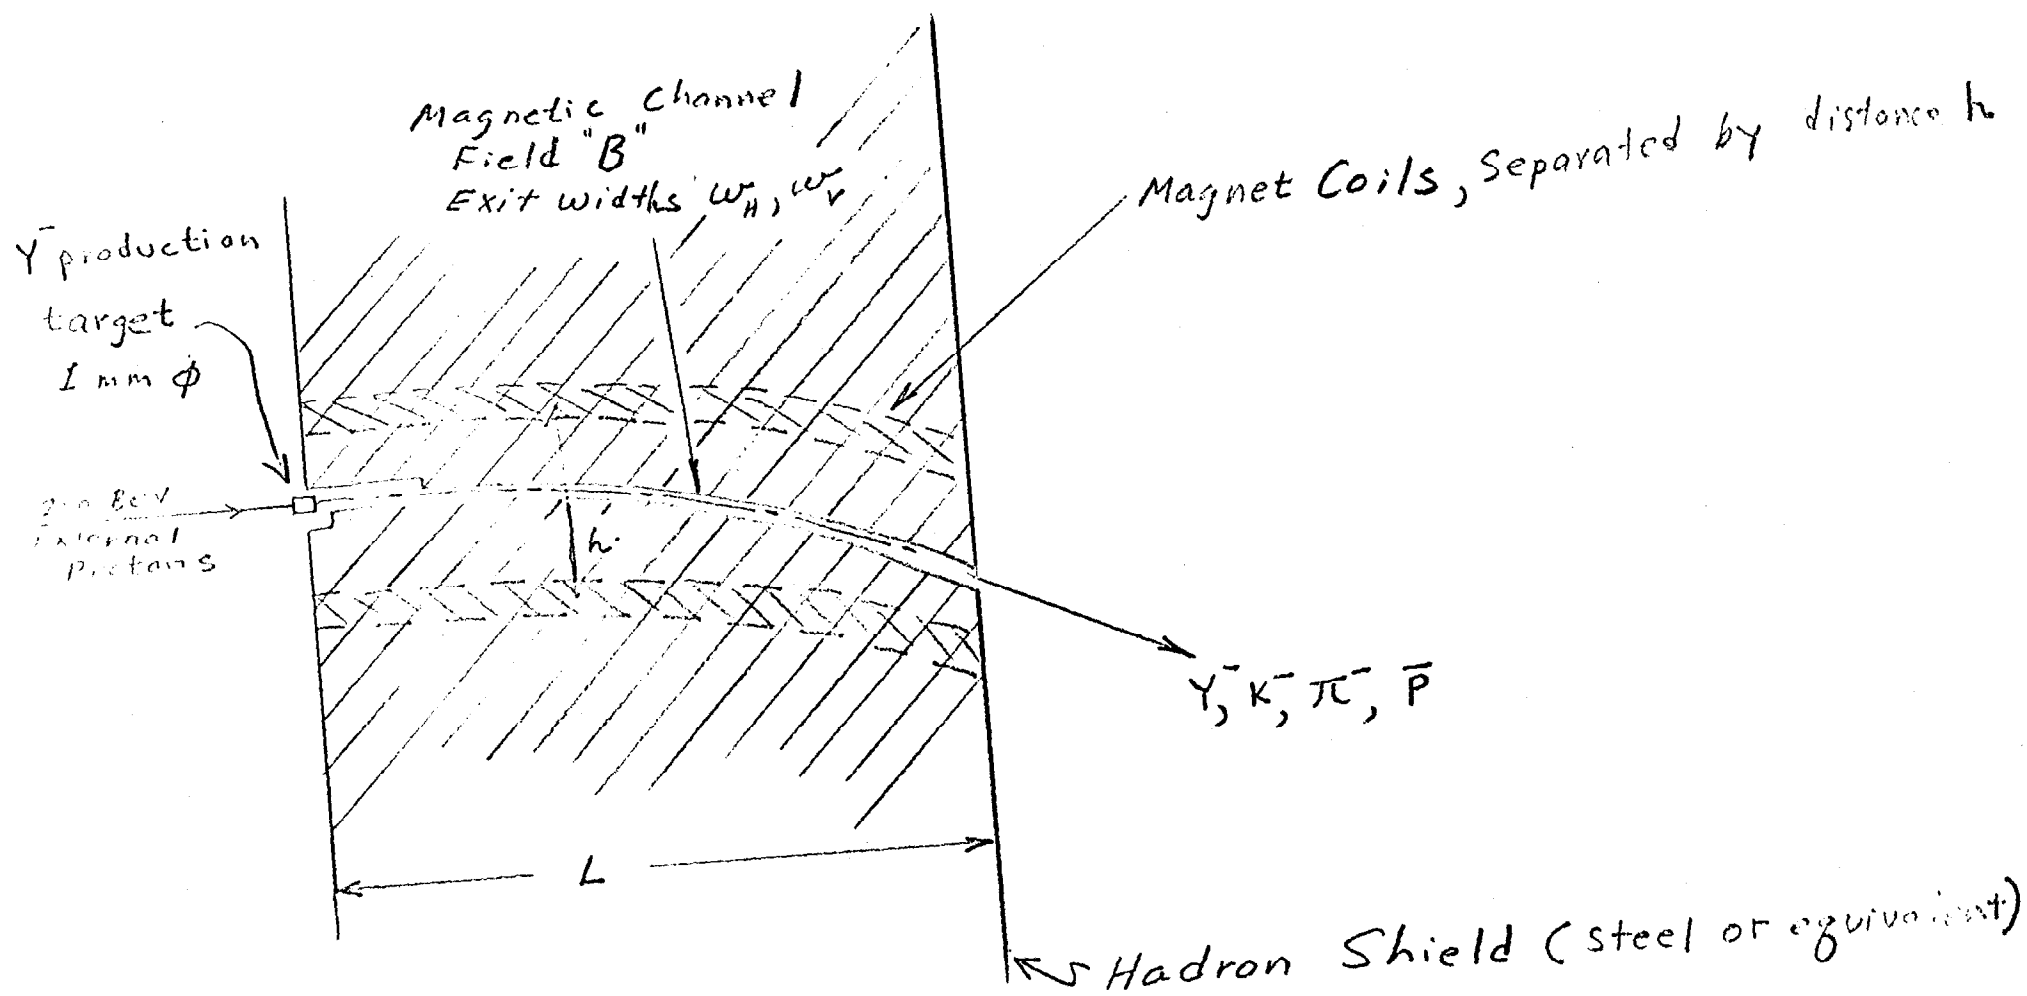 Magnetic Channel
Field "B"
Exit widths w_H, w_V
Magnet Coils, Separated by distance h
Y⁻ production
target
1 mm ϕ
BeV
External
Protons
h
Y⁻, K⁻, π⁻, p̄
L
Hadron Shield (steel or equivalent)